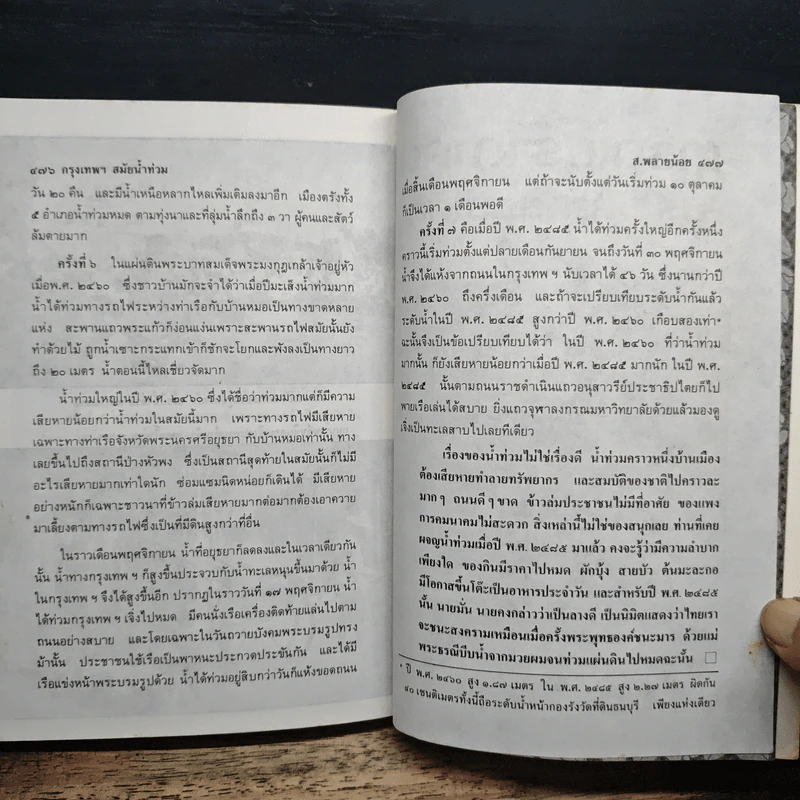 ๔๗๖ กรุงเทพฯ สมัยน้ำท่วม
วัน ๒๐ คืน และมีน้ำเหนือหลากไหลเพิ่มเติมลงมาอีก เมืองตรังทั้ง
๕ อำเภอน้ำท่วมหมด ตามทุ่งนาและที่ลุ่มน้ำลึกถึง ๓ วา ผู้คนและสัตว์
ล้มตายมาก
ครั้งที่ ๖ ในแผ่นดินพระบาทสมเด็จพระมงกุฎเกล้าเจ้าอยู่หัว
เมื่อพ.ศ. ๒๔๖๐ ซึ่งชาวบ้านมักจะจำได้ว่าเมื่อปีมะเส็งน้ำท่วมมาก
น้ำได้ท่วมทางรถไฟระหว่างท่าเรือกับบ้านหมอเป็นทางขาดหลาย
แห่ง สะพานแถวพระแก้วก็ง่อนแง่นเพราะสะพานรถไฟสมัยนั้นยัง
ทำด้วยไม้ ถูกน้ำเซาะกระแทกเข้าก็ชักจะโยกและพังลงเป็นทางยาว
ถึง ๒๐ เมตร น้ำตอนนี้ไหลเชี่ยวจัดมาก
น้ำท่วมใหญ่ในปี พ.ศ. ๒๔๖๐ ซึ่งได้ชื่อว่าท่วมมากแต่ก็มีความ
เสียหายน้อยกว่าน้ำท่วมในสมัยนี้มาก เพราะทางรถไฟมีเสียหาย
เฉพาะทางท่าเรือจังหวัดพระนครศรีอยุธยา กับบ้านหมอเท่านั้น ทาง
เลยขึ้นไปถึงสถานีปางหัวพง ซึ่งเป็นสถานีสุดท้ายในสมัยนั้นก็ไม่มี
อะไรเสียหายมากเท่าใดนัก ซ่อมแซมนิดหน่อยก็เดินได้ มีเสียหาย
อย่างหนักก็เฉพาะชาวนาที่ข้าวล่มเสียหายมากต่อมากต้องเอาควาย
มาเลี้ยงตามทางรถไฟซึ่งเป็นที่มีดินสูงกว่าที่อื่น
ในราวเดือนพฤศจิกายน น้ำที่อยุธยาก็ลดลงและในเวลาเดียวกัน
นั้น น้ำทางกรุงเทพ ฯ ก็สูงขึ้นประจวบกับน้ำทะเลหนุนขึ้นมาด้วย น้ำ
ในกรุงเทพ ฯ จึงได้สูงขึ้นอีก ปรากฏในราววันที่ ๑๗ พฤศจิกายน น้ำ
ได้ท่วมกรุงเทพ ฯ เจิ่งไปหมด มีคนนั่งเรือเครื่องติดท้ายแล่นไปตาม
ถนนอย่างสบาย และโดยเฉพาะในวันถวายบังคมพระบรมรูปทรง
ม้านั้น ประชาชนใช้เรือเป็นพาหนะประกวดประขันกัน และได้มี
เรือแข่งหน้าพระบรมรูปด้วย น้ำได้ท่วมอยู่สิบกว่าวันก็แห้งขอดถนน
ส.พลายน้อย ๔๗๗
เมื่อสิ้นเดือนพฤศจิกายน แต่ถ้าจะนับตั้งแต่วันเริ่มท่วม ๑๐ ตุลาคม
ก็เป็นเวลา ๑ เดือนพอดี
ครั้งที่ ๗ คือเมื่อปี พ.ศ. ๒๔๘๕ น้ำได้ท่วมครั้งใหญ่อีกครั้งหนึ่ง
คราวนี้เริ่มท่วมตั้งแต่ปลายเดือนกันยายน จนถึงวันที่ ๓๐ พฤศจิกายน
น้ำจึงได้แห้งจากถนนในกรุงเทพ ฯ นับเวลาได้ ๔๖ วัน ซึ่งนานกว่าปี
พ.ศ. ๒๔๖๐ ถึงครึ่งเดือน และถ้าจะเปรียบเทียบระดับน้ำกันแล้ว
ระดับน้ำในปี พ.ศ. ๒๔๘๕ สูงกว่าปี พ.ศ. ๒๔๖๐ เกือบสองเท่า*
ฉะนั้นจึงเป็นข้อเปรียบเทียบได้ว่า ในปี พ.ศ. ๒๔๖๐ ที่ว่าน้ำท่วม
มากนั้น ก็ยังเสียหายน้อยกว่าเมื่อปี พ.ศ. ๒๔๘๕ มากนัก ในปี พ.ศ.
๒๔๘๕ นั้นตามถนนราชดำเนินแถวอนุสาวรีย์ประชาธิปไตยก็ไป
พายเรือเล่นได้สบาย ยิ่งแถวจุฬาลงกรณมหาวิทยาลัยด้วยแล้วมองดู
เจิ่งเป็นทะเลสาบไปเลยทีเดียว
เรื่องของน้ำท่วมไม่ใช่เรื่องดี น้ำท่วมคราวหนึ่งบ้านเมือง
ต้องเสียหายทำลายทรัพยากร และสมบัติของชาติไปคราวละ
มาก ๆ ถนนดี ๆ ขาด ข้าวล่มประชาชนไม่มีที่อาศัย ของแพง
การคมนาคมไม่สะดวก สิ่งเหล่านี้ไม่ใช่ของสนุกเลย ท่านที่เคย
ผจญน้ำท่วมเมื่อปี พ.ศ. ๒๔๘๕ มาแล้ว คงจะรู้ว่ามีความลำบาก
เพียงใด ของกินมีราคาไปหมด ผักบุ้ง สายบัว ต้นมะละกอ
มีโอกาสขึ้นโต๊ะเป็นอาหารประจำวัน และสำหรับปี พ.ศ. ๒๔๘๕
นั้น นายมั่น นายคงกล่าวว่าเป็นลางดี เป็นนิมิตแสดงว่าไทยเรา
จะชนะสงครามเหมือนเมื่อครั้งพระพุทธองค์ชนะมาร ด้วยแม่
พระธรณีบีบน้ำจากมวยผมจนท่วมแผ่นดินไปหมดฉะนั้น □
* ปี พ.ศ. ๒๔๖๐ สูง ๑.๘๗ เมตร ใน พ.ศ. ๒๔๘๕ สูง ๒.๒๗ เมตร ผิดกัน
๙๐ เซนติเมตรทั้งนี้ถือระดับน้ำหน้ากองรังวัดที่ดินธนบุรี เพียงแห่งเดียว